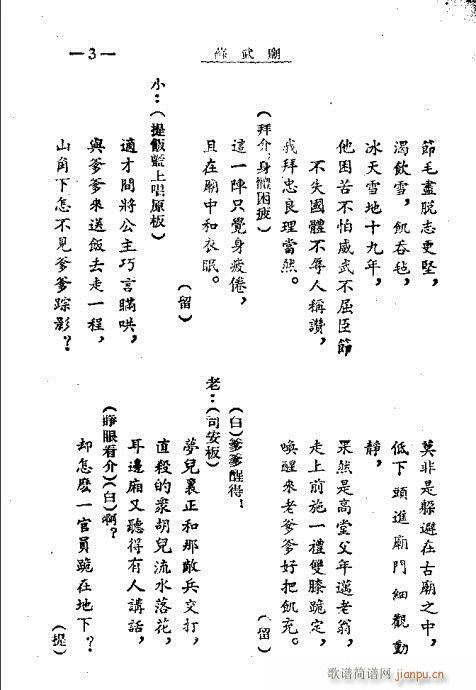 蘇武廟
—3—
節毛盡脫志更堅，
渴飲雪，飢吞毡，
冰天雪地十九年，
他困苦不怕威武不屈臣節
不失國體不辱人稱讚，
我拜忠良理當然。
（拜介，身體困疲）
這一陣只覺身疲倦，
且在廟中和衣眠。
（留）
小：（提飯籃上唱原板）
適才間將公主巧言瞞哄，
與爹爹來送飯去走一程，
山角下怎不見爹爹踪影？
莫非是躲避在古廟之中，
低下頭進廟門細觀動
靜，
果然是高堂父年邁老翁，
走上前施一禮雙膝跪定，
喚醒來老爹爹好把飢充。
（留）
（白）爹爹醒得！
老：（司安板）
夢兒裏正和那敵兵交打，
直殺的衆胡兒流水落花，
耳邊廂又聽得有人講話，
（睜眼看介）（白）啊？
却怎麽一官員跪在地下？
（提）
歌谱简谱网
jianpu.cn